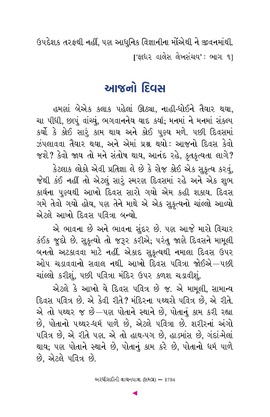 ઉપદેશક તરફથી નહીં, પણ આધુનિક વિજ્ઞાનીના મોંએથી ને જીવનમાંથી.
[‘ફાધર વાલેસ લેખસંચય’ : ભાગ ૧]
આજનો દિવસ
હમણાં બેએક કલાક પહેલાં ઊઠ્યા, નાહી-ધોઈને તૈયાર થયા,
ચા પીધી, છાપું વાંચ્યું, ભગવાનનેય યાદ કર્યા; મનમાં ને મનમાં સંકલ્પ
કર્યો કે કોઈ સારું કામ થાય અને કોઈ પુણ્ય મળે. પછી દિવસમાં
ઝંપલાવવા તૈયાર થયા, અને એમાં પ્રશ્ન થયો : આજનો દિવસ કેવો
જશે? કેવો જાય તો મને સંતોષ થાય, આનંદ રહે, કૃતકૃત્યતા લાગે?
કેટલાક લોકો એવી પ્રતિજ્ઞા લે છે કે રોજ કોઈ એક સુકૃત્ય કરવું,
જેથી કંઈ નહીં તો એટલું સારું સ્મરણ દિવસમાં રહે અને એક શુભ
કાર્યના પુણ્યથી આખો દિવસ સારો ગયો એમ કહી શકાય. દિવસ
ગમે તેવો ગયો હોય, પણ તેને માથે એ એક સુકૃત્યનો ચાંલ્લો આવ્યો
એટલે આખો દિવસ પવિત્ર બન્યો.
એ ભાવના છે અને ભાવના સુંદર છે. પણ આજે મારો વિચાર
કંઈક જુદો છે. સુકૃત્યો તો જરૂર કરીએ; પરંતુ જાણે દિવસને મામૂલી
બનતો અટકાવવા માટે નહીં. એકાદ સુકૃત્યથી નમાલા દિવસ ઉપર
ઓપ ચડાવવાનો સવાલ નથી. આખો દિવસ પવિત્ર જોઈએ—પછી
ચાંલ્લો કરીશું, પછી પવિત્ર મંદિર ઉપર કળશ ચડાવીશું.
એટલે કે આખો યે દિવસ પવિત્ર છે જ. એ મામૂલી, સામાન્ય
દિવસ પવિત્ર છે. એ કેવી રીતે? મંદિરના પથ્થરો પવિત્ર છે, એ રીતે.
એ તો પથ્થર જ છે—પણ પોતાને સ્થાને છે, પોતાનું કામ કરી રહ્યા
છે, પોતાનો પથ્થર-ધર્મ પાળે છે, એટલે પવિત્ર છે. શરીરનાં અંગો
પવિત્ર છે, એ રીતે પણ. એ તો હાથ-પગ છે, હાડમાંસ છે, ગંદાં-મેલાં
થાય; પણ પોતાને સ્થાને છે, પોતાનું કામ કરે છે, પોતાનો ધર્મ પાળે
છે, એટલે પવિત્ર છે.